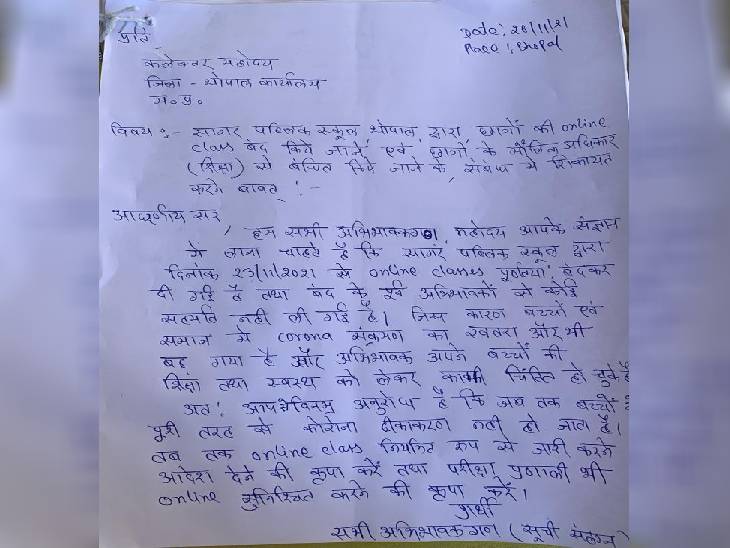 प्रति,
Date: 26/11/21
Place: Bhopal
कलेक्टर महोदय
जिला - भोपाल कार्यालय
म.प्र.
विषय :- सागर पब्लिक स्कूल भोपाल द्वारा छात्रों की online
class बंद किये जाने एवं छात्रों के मौलिक अधिकार
(शिक्षा) से वंचित किये जाने के संबंध में शिकायत
करने बावत् ! -
आदरणीय सर,
हम सभी अभिभावकगण महोदय आपके संज्ञान
में लाना चाहते है कि सागर पब्लिक स्कूल द्वारा
दिनांक 23/11/2021 से online classes पूर्णतया बंद कर
दी गई है तथा बंद के पूर्व अभिभावकों से कोई
सहमति नहीं ली गई है। जिस कारण बच्चों एवं
समाज में corona संक्रमण का खतरा और भी
बढ़ गया है और अभिभावक अपने बच्चों की
शिक्षा तथा स्वस्थ को लेकर काफी चिंतित हो चुके है
अतः आपसे विनम्र अनुरोध है कि जब तक बच्चों
पूरी तरह को कोरोना टीकाकरण नहीं हो जाता है।
तब तक online class नियमित रूप से जारी करने
आदेश देने की कृपा करें तथा परीक्षा प्रणाली भी
online सुनिश्चित करने की कृपा करें।
प्रार्थी
सभी अभिभावक गण (सूची संलग्न)